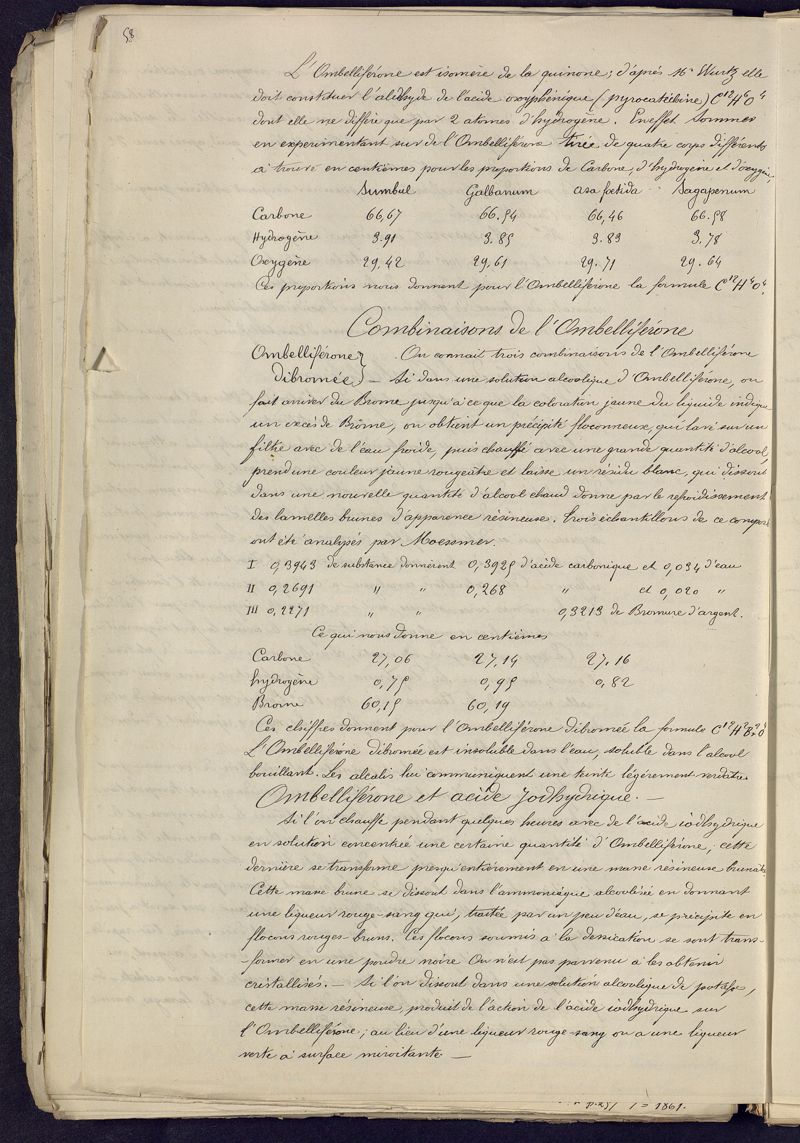 58
L'Ombelliférone est isomère de la quinone; d'après Mr Wurtz elle
doit constituer l'aldhyde de l'acide oxyphénique (pyrocatéchine) C12H6O4
dont elle ne diffère que par 2 atomes d'hydrogène. En effet Sommer
en expérimentant sur de l'Ombelliférone tirée de quatre corps différents
a trouvé en centièmes pour les proportions de Carbone, d'hydrogène et d'oxygène,
Sumbul Galbanum asa foetida Sagapenum
Carbone 66,67 66.54 66,46 66.58
Hydrogène 3.91 3.85 3.83 3.78
Oxygène 29,42 29.61 29.71 29.64
Ces proportions nous donnent pour l'Ombelliférone la formule C12H4O4.
Combinaisons de l'Ombelliférone
Ombelliférone } . On connait trois combinaisons de l'Ombelliférone
dibromée } — Si dans une solution alcoolique d'Ombelliférone, on
fait arriver du Brome jusqu'à ce que la coloration jaune du liquide indique
un excès de Brôme, on obtient un précipité floconneux, qui lavé sur un
filtre avec de l'eau froide, puis chauffé avec une grande quantité d'alcool,
prend une couleur jaune rougeâtre et laisse un résidu blanc, qui dissout
dans une nouvelle quantité d'alcool chaud donne par le refroidissement
des lamelles brunes d'apparence résineuse. Trois échantillons de ce composé
ont été analysés par Moessmer.
I 0,3943 de substance donnèrent 0,3925 d'acide carbonique et 0,034 d'eau
II 0,2691 " " 0,268 " et 0,020 "
III 0,2271 " " 0,3213 de Bromure d'argent.
Ce qui nous donne en centièmes
Carbone 27,06 27,14 27.16
hydrogène 0,75 0,95 0,82
Brome 60,15 60,19
Ces chiffres donnent pour l'Ombelliférone dibromée la formule C12H2Br2O4
L'Ombelliférone dibromée est insoluble dans l'eau, soluble dans l'alcool
bouillant. Les alcalis lui communiquent une teinte légèrement verdâtre
Ombelliférone et acide Jodhydrique. —
Si l'on chauffe pendant quelques heures avec de l'acide iodhydrique
en solution concentrée une certaine quantité d'Ombelliférone, cette
dernière se transforme presqu'entièrement en une masse résineuse brunâtre
Cette masse brune se dissout dans l'ammoniaque alcoolisée en donnant
une liqueur rouge-sang qui, traitée par un peu d'eau, se précipite en
flocons rouges-bruns. Ces flocons soumis à la dessication se sont trans-
-former en une poudre noire On n'est pas parvenu à les obtenir
cristallisés. — Si l'on dissout dans une solution alcoolique de potasse,
cette masse résineuse, produit de l'action de l'acide iodhydrique sur
l'Ombelliférone; au lieu d'une liqueur rouge-sang on a une liqueur
verte à surface miroitante —
1861.